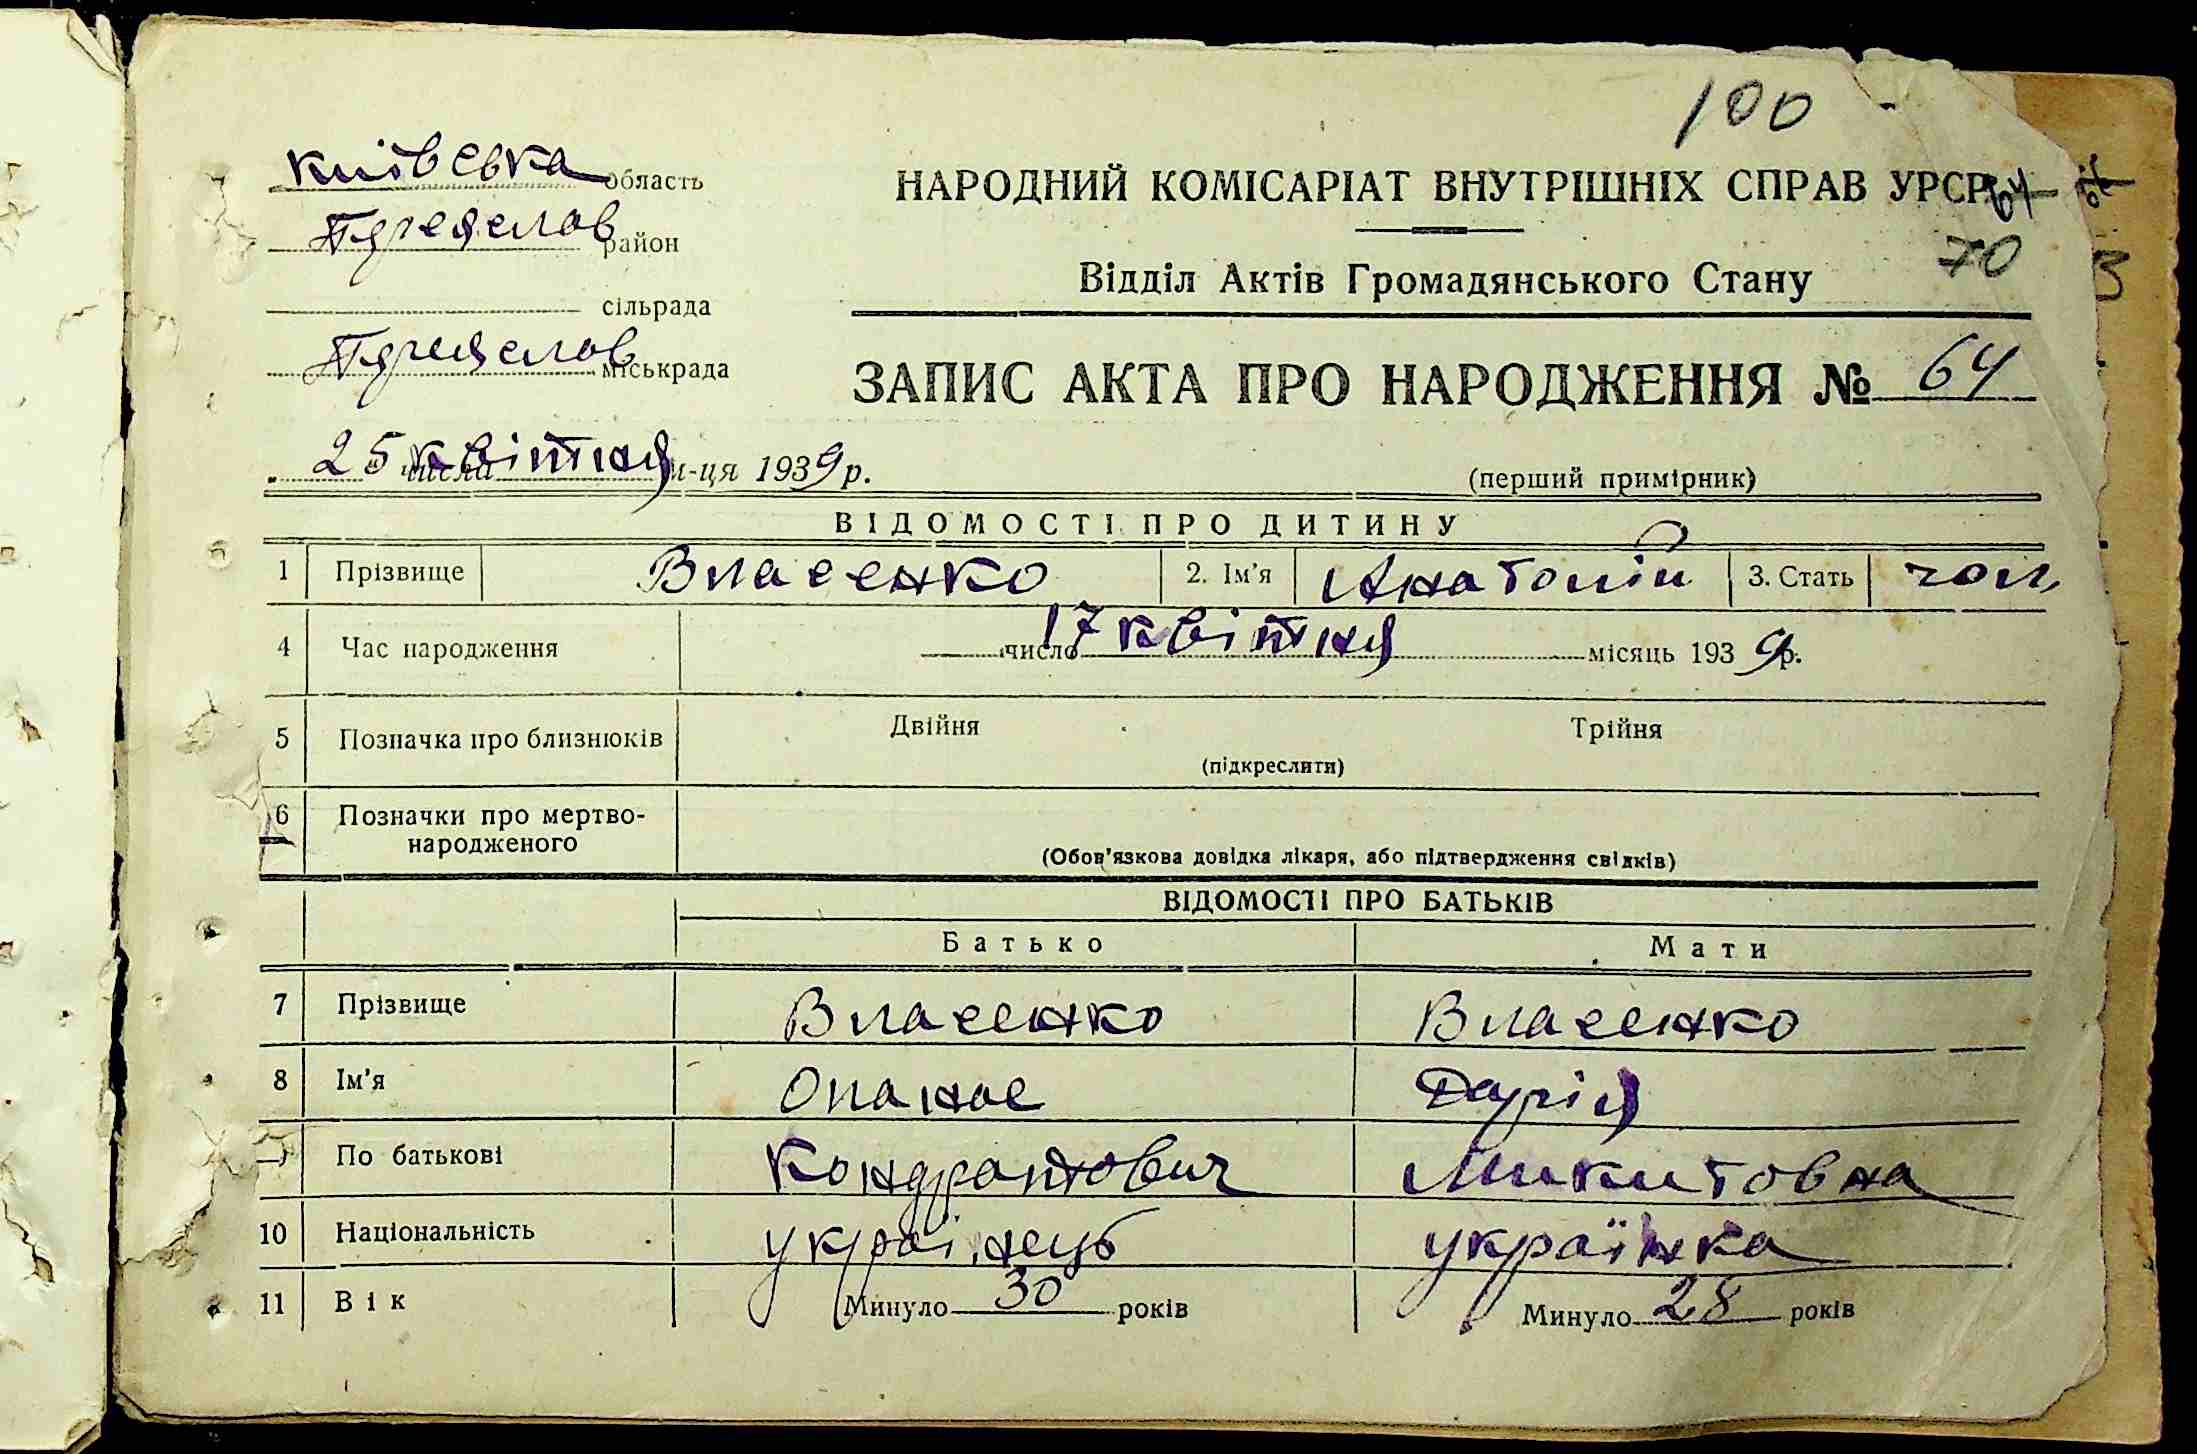 100
Київська область
НАРОДНИЙ КОМІСАРІАТ ВНУТРІШНІХ СПРАВ УРСР
64
Переяслав район
Відділ Актів Громадянського Стану
70
сільрада
Переяслав міськрада
ЗАПИС АКТА ПРО НАРОДЖЕННЯ № 64
25 числа квітня м-ця 1939 р.
(перший примірник)
ВІДОМОСТІ ПРО ДИТИНУ
1 Прізвище Власенко 2. Ім'я Анатолій 3. Стать чол.
4 Час народження число 17 квітня місяць 1939 р.
5 Позначка про близнюків Двійня Трійня
(підкреслити)
6 Позначки про мертво-
народженого
(Обов'язкова довідка лікаря, або підтвердження свідків)
ВІДОМОСТІ ПРО БАТЬКІВ
Батько Мати
7 Прізвище Власенко Власенко
8 Ім'я Опанас Дарія
По батькові Кондратович Микитовна
10 Національність украінець українка
11 Вік Минуло 30 років Минуло 28 років